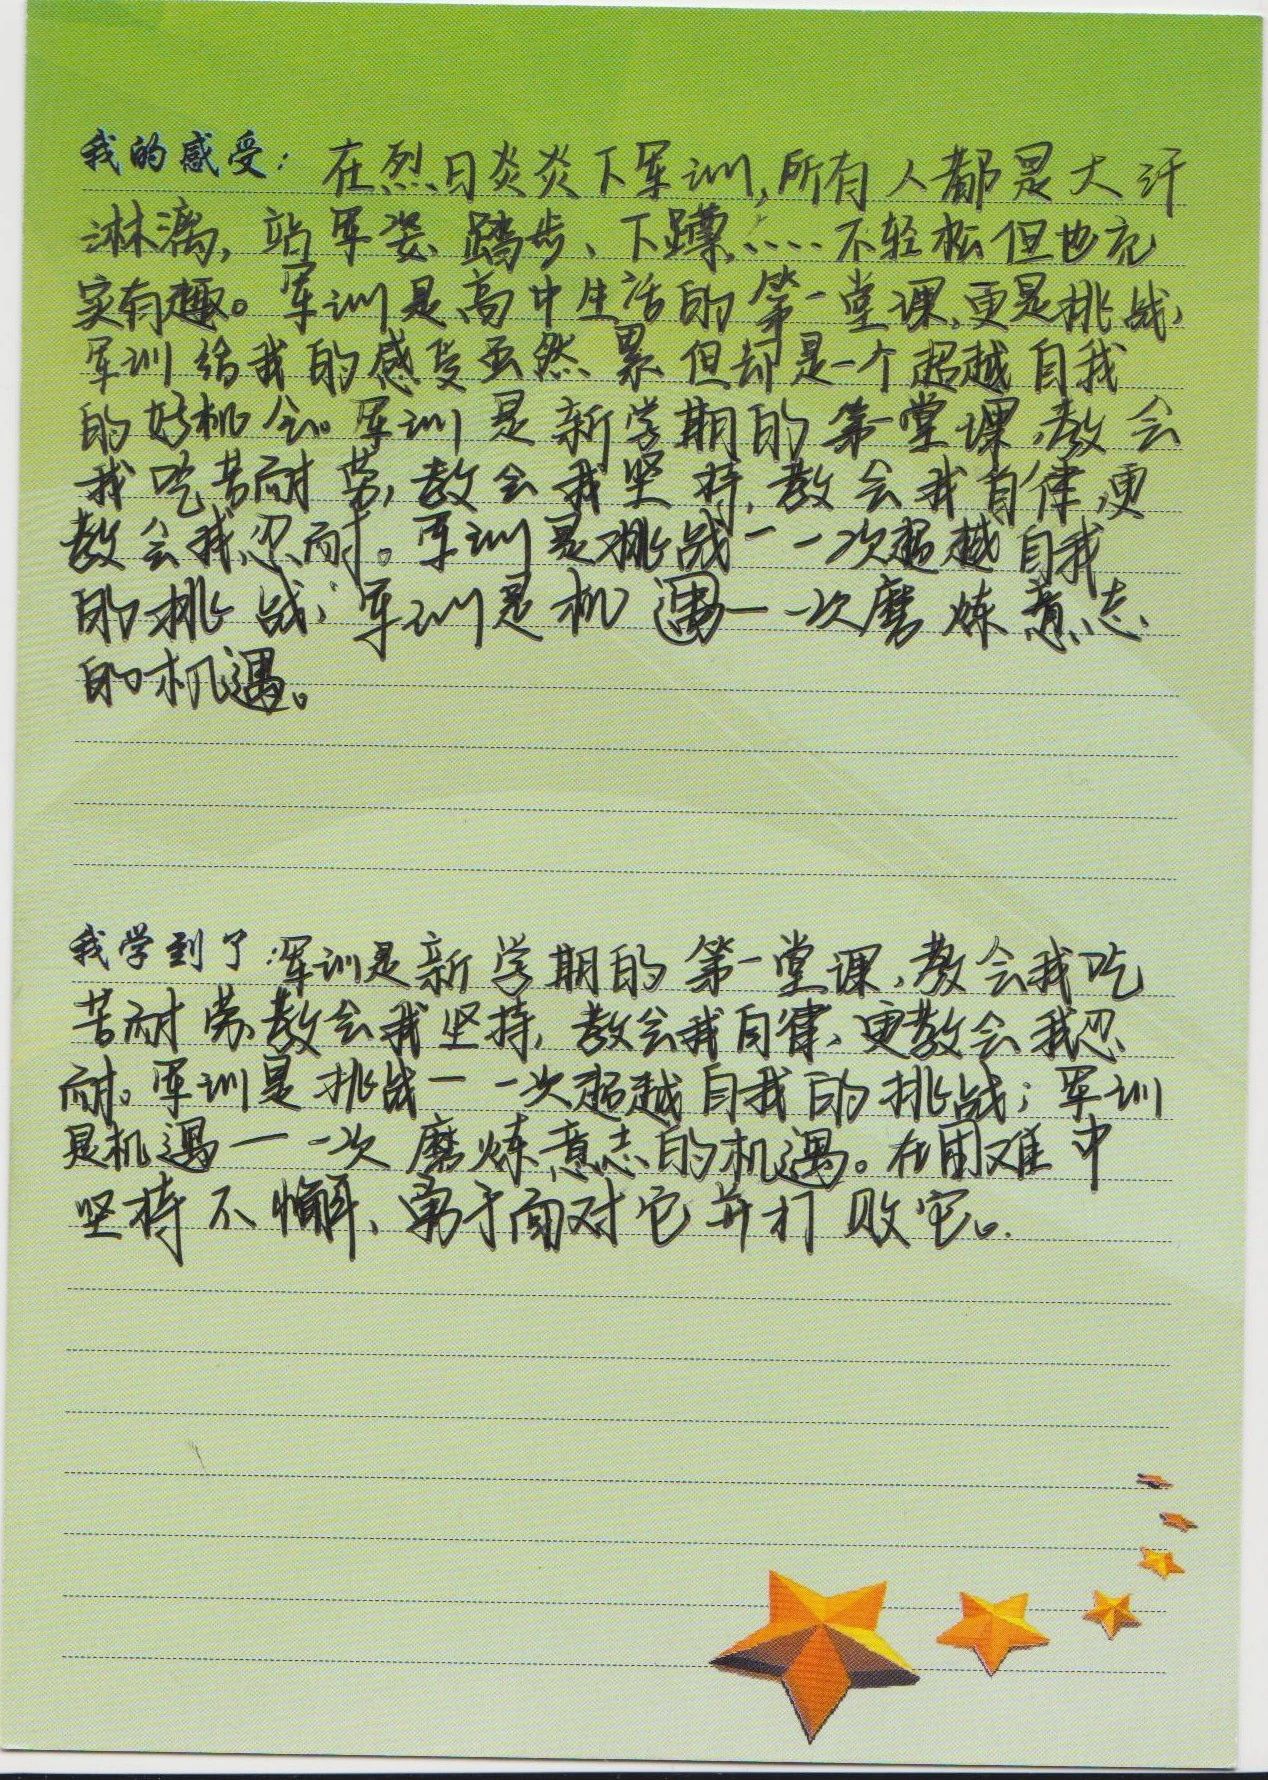 我的感受：在烈日炎炎下军训，所有人都是大汗
淋漓，站军姿、踏步、下蹲……不轻松但也充
实有趣。军训是高中生活的第一堂课，更是挑战，
军训给我的感受虽然累但却是一个超越自我
的好机会。军训是新学期的第一堂课，教会
我吃苦耐劳，教会我坚持，教会我自律，更
教会我忍耐。军训是挑战一一次超越自我
的挑战；军训是机遇一一次磨炼意志
的机遇。
我学到了：军训是新学期的第一堂课，教会我吃
苦耐劳，教会我坚持，教会我自律，更教会我忍
耐。军训是挑战一一次超越自我的挑战；军训
是机遇一一次磨炼意志的机遇。在困难中
坚持不懈、勇于面对它并打败它。